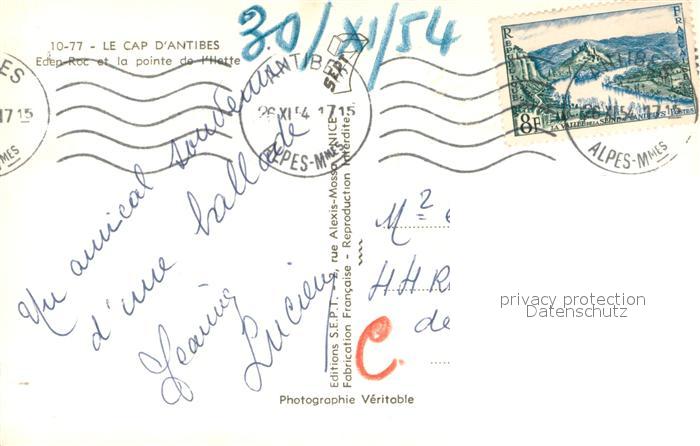 10-77 - LE CAP D'ANTIBES
Eden-Roc et la pointe de l'Ilette
30/XI/54
ANTIBES
17 15
ALPES-MMES
26 XI 54 17 15
RÉPUBLIQUE FRANÇAISE
8F
LA VALLÉE DE LA SEINE AUX ANDELYS
17 15
ALPES-MMES
SEPT
Un amical souvenir
d'une ballade
Jeanine
Lucien
Editions S.E.P.T. rue Alexis-Mossa, NICE
Fabrication Française - Reproduction Interdite
M
HH
de
C.
privacy protection
Datenschutz
Photographie Véritable